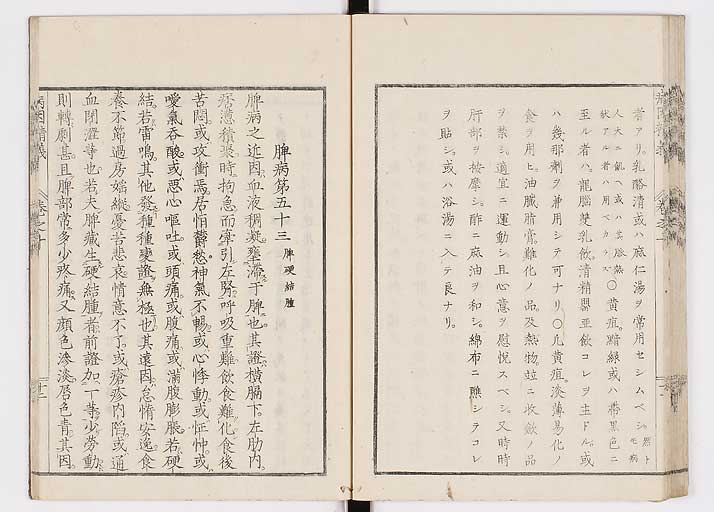 者アリ。乳酪清或ハ麻仁湯ヲ常用セシムベシ。然トモ病
人大ニ飢ヘ或ハ
状アル者ハ用ベカラズ〇黄疸。黯緑或ハ帯黒色ニ
至ル者ハ。龍脳
ハ幾那剤ヲ兼用シテ可ナリ〇凡黄疸。淡薄易化ノ
食ヲ用ヒ。油膩脂膏。難化ノ品。及熱物。竝ニ收斂ノ品
ヲ禁シ。適宜ニ運動シ。且心意ヲ慰悦スベシ。又時時
肝部ヲ按摩シ。酢ニ麻油ヲ和シ。綿布ニ蘸シテコレ
ヲ貼シ。或ハ浴湯ニ入テ良ナリ。
脾病第五十三 脾硬結腫
脾病之近因。血液稠凝。壅滯于脾也。其證橫膈下。左肋內。
痞懣積聚。時拘急而牽引左腎。呼吸重難。飲食難化。食後
苦悶。或攻衝焉。居恒鬱愁。神氣不暢。或心悸動。或怔忡。或
噯氣吞酸。或惡心嘔吐。或頭痛。或腹痛。或滿腹膨脹。若硬
結。若雷鳴。其他發種種變證。無極也。其遠因。怠惰安逸。食
養不節。過房婬縱。憂苦悲哀。情意不了。或瘡疹內陷。或通
血閉澀等也。若夫脾藏生硬結腫者。前證加一等。少勞動
則轉劇甚。且脾部常多少疼痛。又顏色滲淡。唇色青。其因。